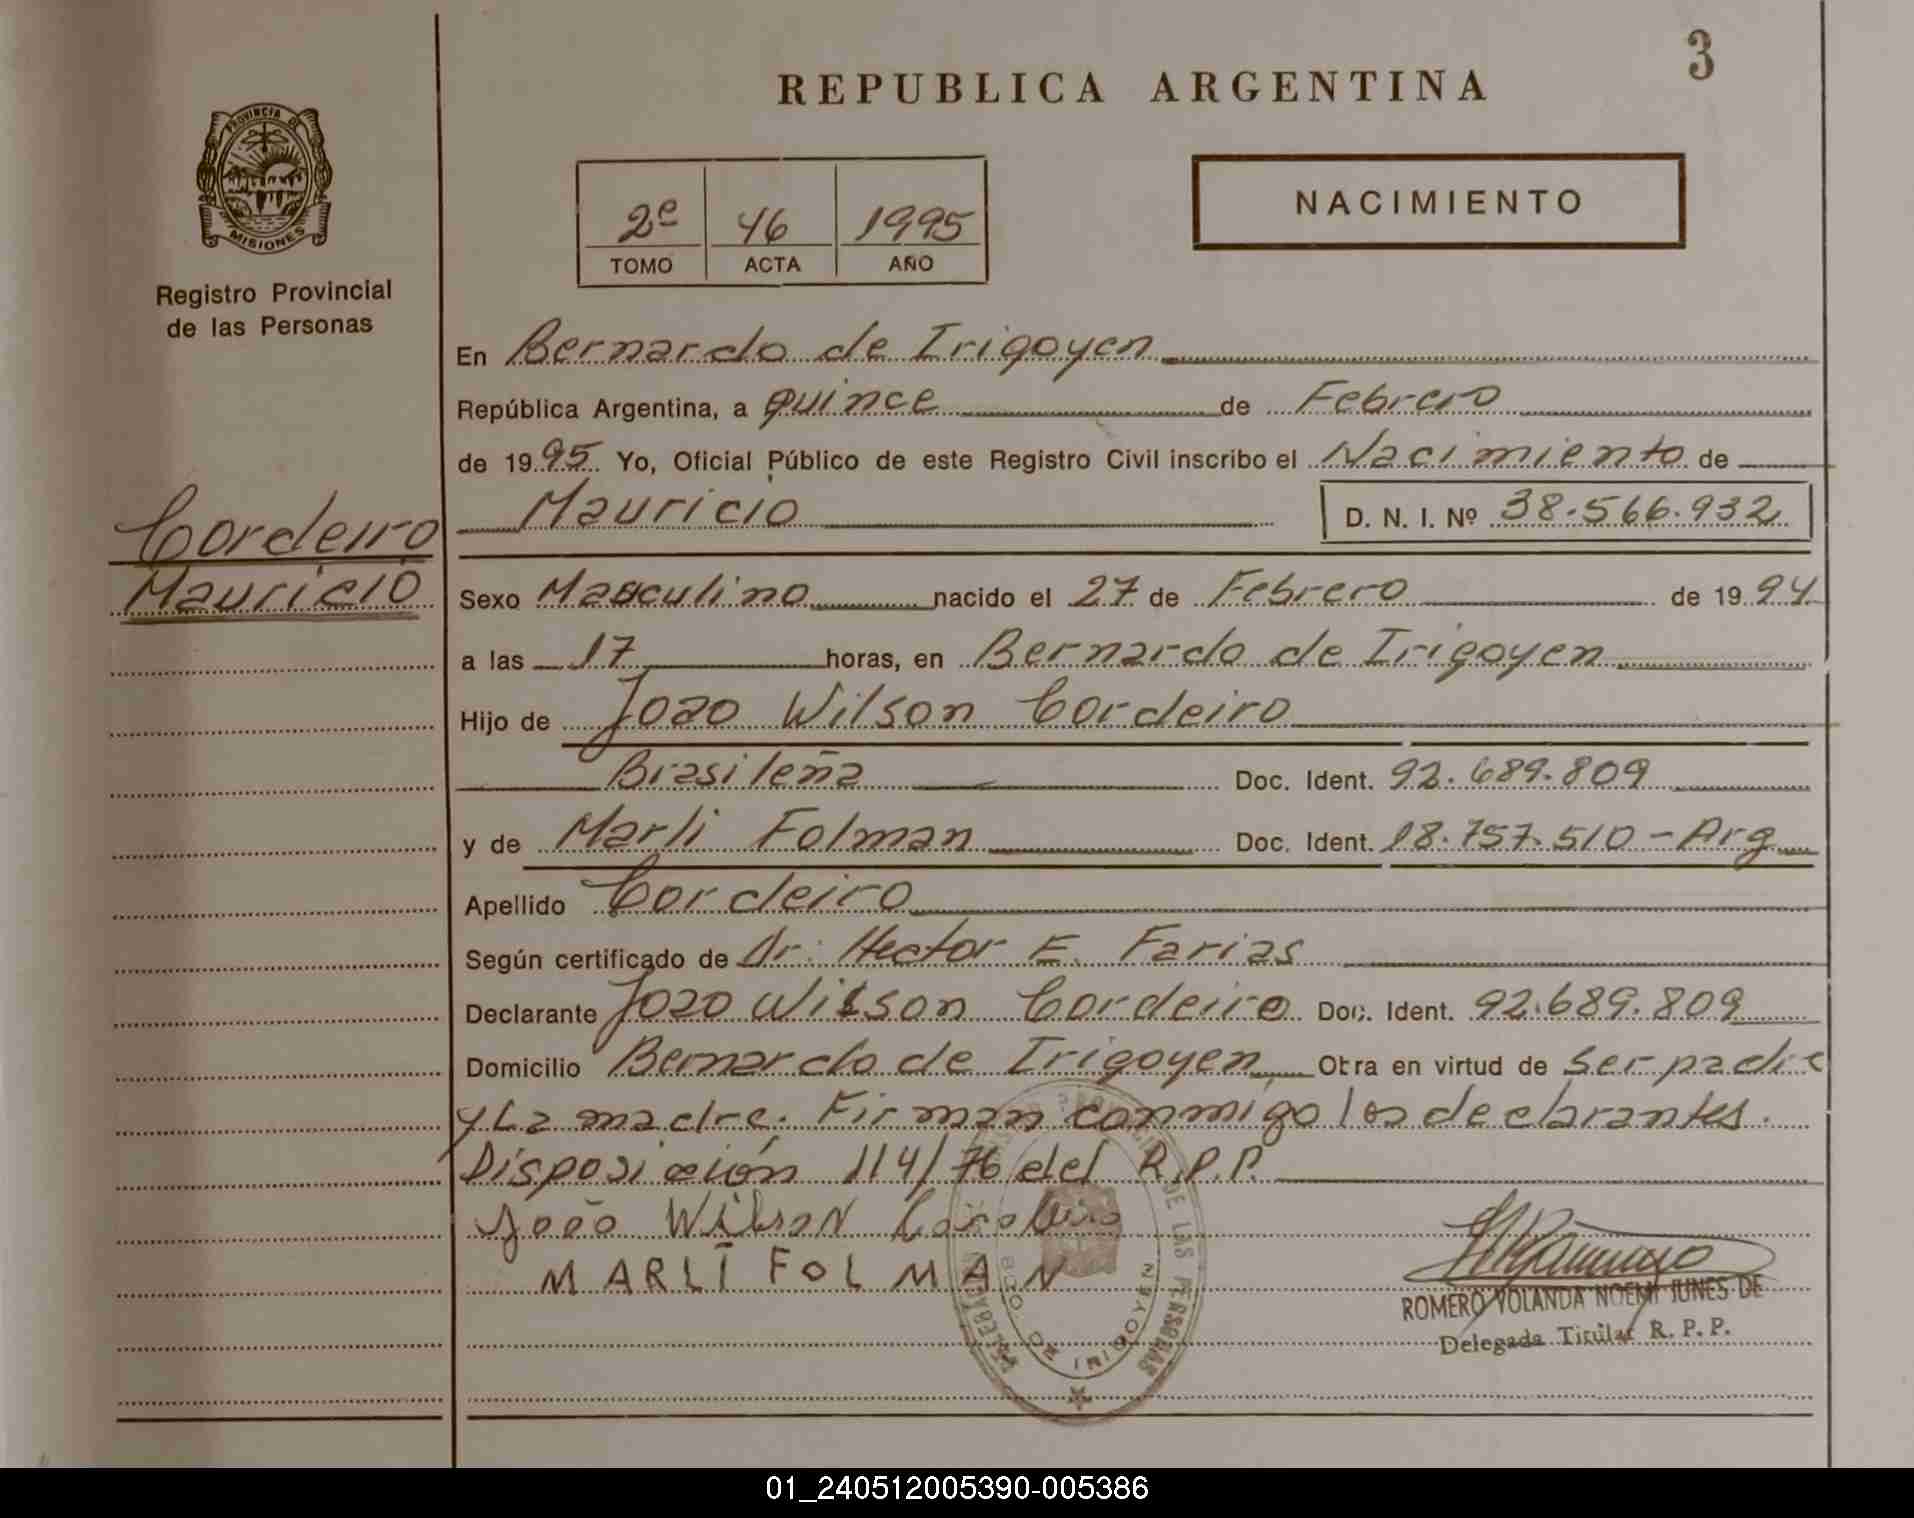 3
REPUBLICA ARGENTINA
PROVINCIA DE
MISIONES
Registro Provincial
de las Personas
2º 46 1995
TOMO ACTA AÑO
NACIMIENTO
En Bernardo de Irigoyen
República Argentina, a quince de Febrero
de 1995 Yo, Oficial Público de este Registro Civil inscribo el Nacimiento de
Mauricio D. N. I. Nº 38.566.932
Cordeiro
Mauricio
Sexo Masculino nacido el 27 de Febrero de 1994
a las 17 horas, en Bernardo de Irigoyen
Hijo de Joao Wilson Cordeiro
Brasileña Doc. Ident. 92.689.809
y de Marli Folman Doc. Ident. 18.757.510 - Arg
Apellido Cordeiro
Según certificado de Dr: Hector E. Farias
Declarante Joao Wilson Cordeiro Doc. Ident. 92.689.809
Domicilio Bernardo de Irigoyen Obra en virtud de ser padre
y La madre. Firman conmigo los declarantes.
Disposición 114/76 del R.P.P.
João Wilson Cordeiro
MARLI FOLMAN
DE LAS PERSONAS
BDO. D. IRIGOYEN
ROMERO YOLANDA NOEMI JUNES DE
Delegada Titular R. P. P.
01_240512005390-005386